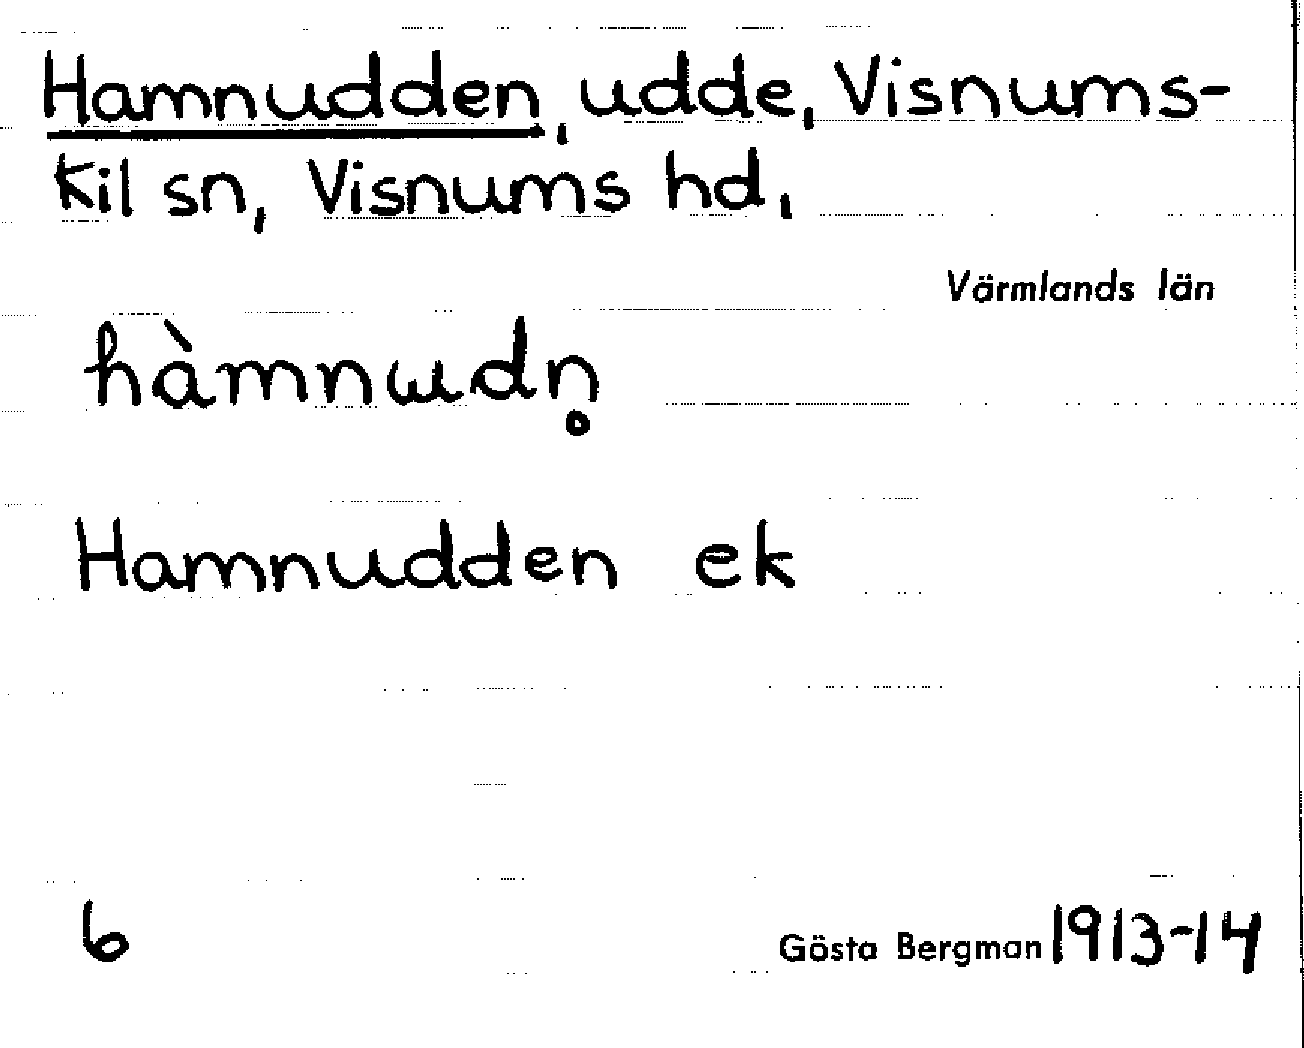 Hamnudden, udde, Visnums-
Kil sn, Visnums hd,
Värmlands län
hàmnɯdn̥
Hamnudden ek
6
Gösta Bergman 1913-14